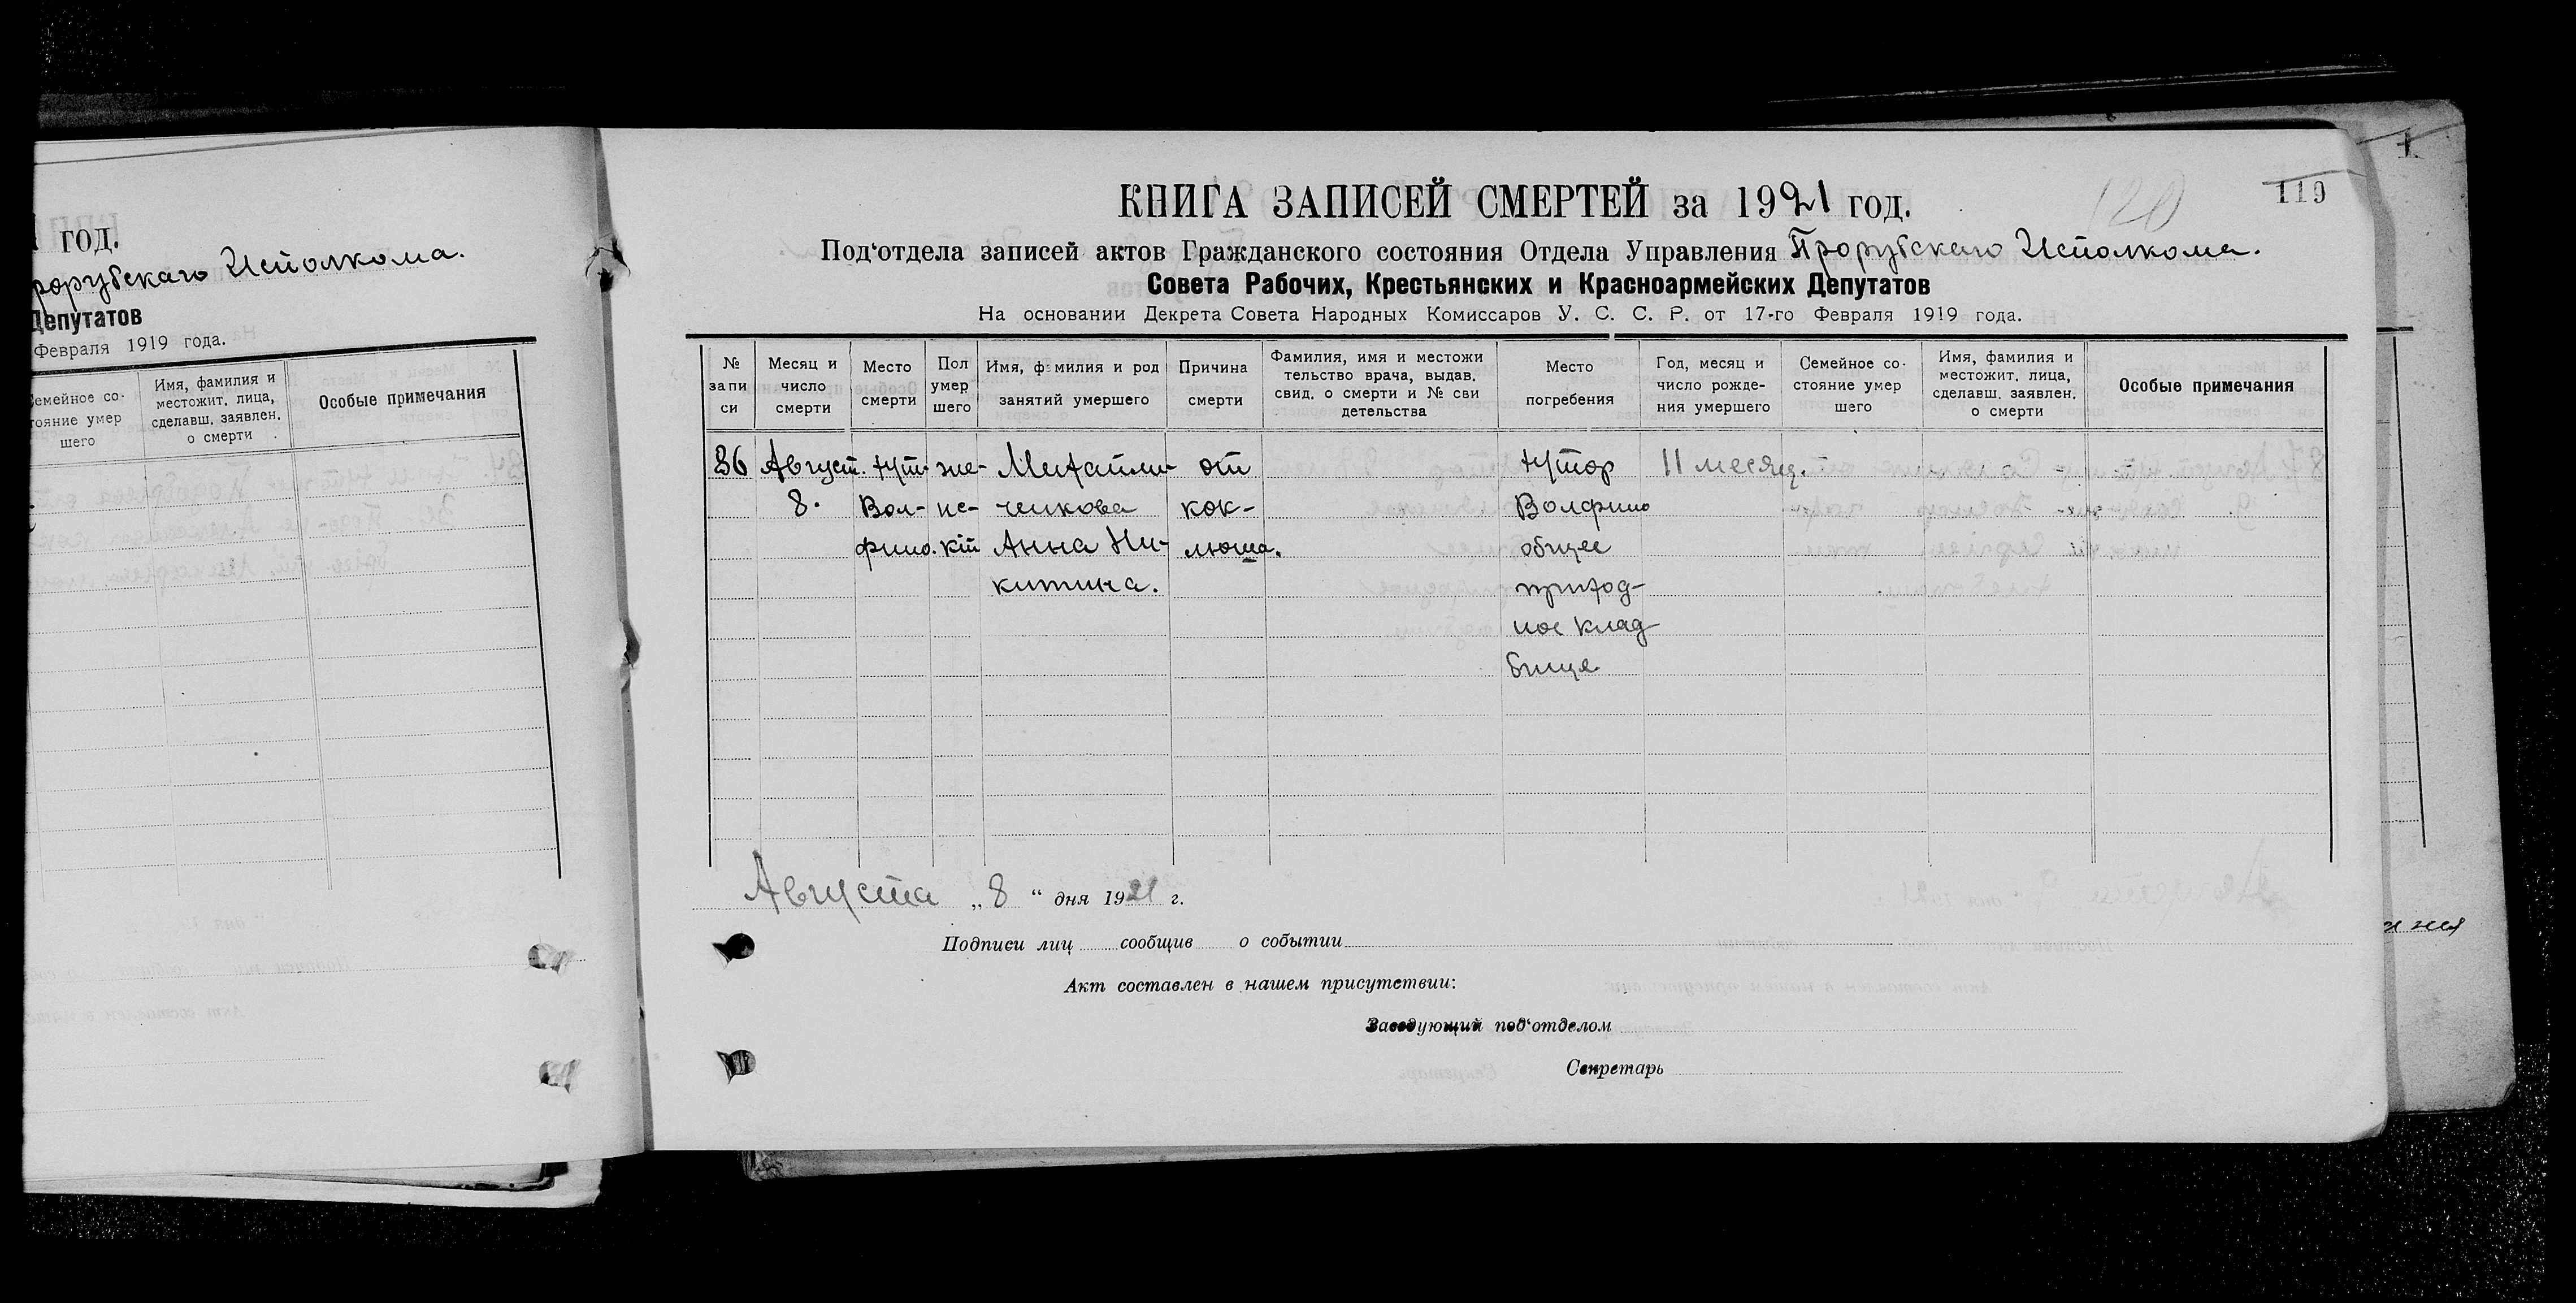 год.
рорубскаго Исполкома.
Депутатов
Февраля 1919 года.
Семейное со-
тояние умер
шего
Имя, фамилия и
местожит. лица,
сделавш. заявлен.
о смерти
Особые примечания
119
120
КНИГА ЗАПИСЕЙ СМЕРТЕЙ за 1921 год.
Под‘отдела записей актов Гражданского состояния Отдела Управления Прорубскаго Исполкома.
Совета Рабочих, Крестьянских и Красноармейских Депутатов
На основании Декрета Совета Народных Комиссаров У. С. С. Р. от 17-го Февраля 1919 года.
№
запи
си
Месяц и
число
смерти
Место
смерти
Пол
умер
шего
Имя, фамилия и род
занятий умершего
Причина
смерти
Фамилия, имя и местожи
тельство врача, выдав.
свид. о смерти и № сви
детельства
Место
погребения
Год, месяц и
число рожде-
ния умершего
Семейное со-
стояние умер
шего
Имя, фамилия и
местожит. лица,
сделавш. заявлен.
о смерти
Особые примечания
86
Август.
8.
хут.
Вол-
фино.
же-
нс-
кій
Михайли-
ченкова
Анна Ни-
китина.
от
кок-
люша.
хутор
Волфино
общее
приход-
ное клад
бище
11 месяц.
Августа „ 8 “ дня 1921 г.
Подписи лиц сообщив о событии
Акт составлен в нашем присутствии:
Заведующий под‘отделом
Секретарь